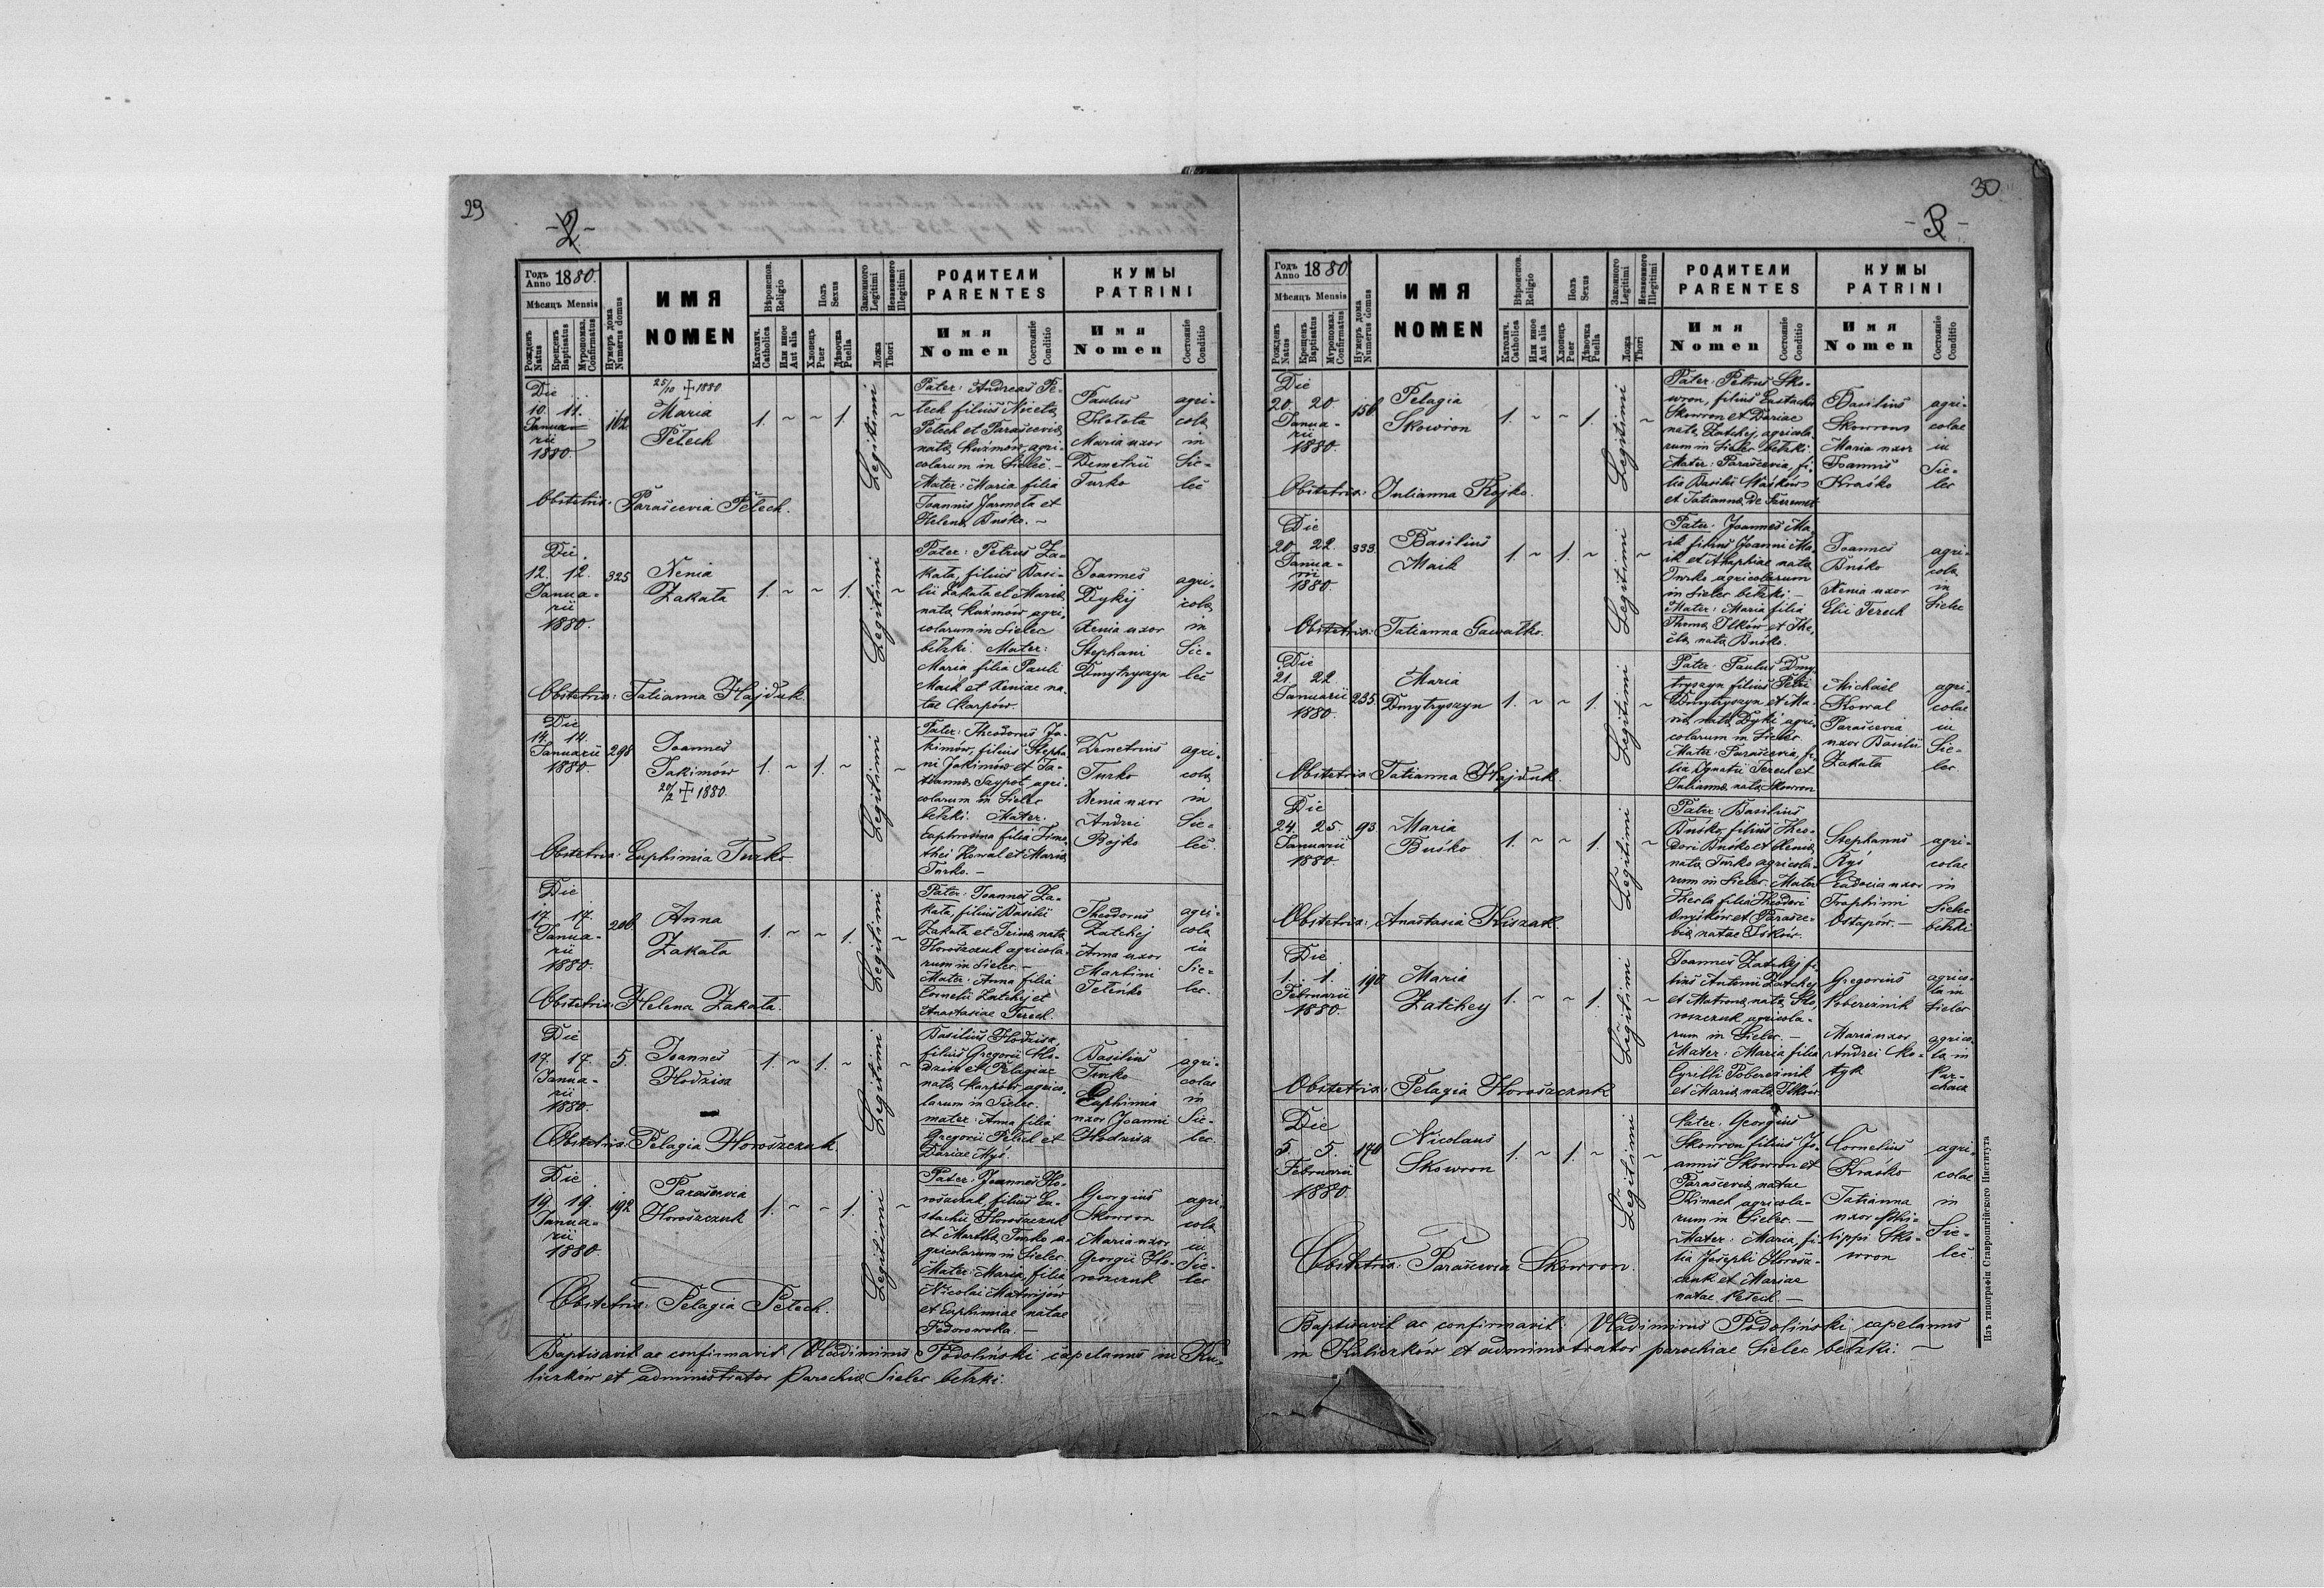 29
-2-
Годъ
Anno 1880.
Мѣсяцъ Mensis
Рожденъ
Natus
Крещенъ
Baptisatus
Муропомаз.
Confirmatus
Нумеръ дома
Numerus domus
ИМЯ
NOMEN
Вѣроиспов.
Religio
Католич.
Catholica
Или иное
Aut alia
Полъ
Sexus
Хлопецъ
Puer
Дѣвочка
Puella
Законного
Legitimi
Незаконного
Illegitimi
Ложа
Thori
РОДИТЕЛИ
PARENTES
Имя
Nomen
Состояніе
Conditio
КУМЫ
PATRINI
Имя
Nomen
Состояніе
Conditio
Die
10. 11.
Janua-
rii
1880.
162
25/10 ✝ 1880.
Maria
Petech
1. ~ ~ 1.
Legitimi
~
Pater: Andreas Pe-
tech filius Niceta
Petech et Parascevia
nata Kuźmów, agri-
colarum in Sielec. -
Mater: Maria filia
Joannis Jarmoła et
Helena Buśko. ~
Paulus
Hołota
Maria uxor
Demetrii
Turko
agri-
cola
in
Sie-
lec
Obstetrix: Parascevia Petech.
Die
12. 12.
Janua-
rii
1880.
325
Xenia
Zakała
1. ~ ~ 1.
Legitimi
~
Pater: Petrus Za-
kała, filius Basi-
lii Zakała et Maria
nata Kuźmów agri-
colarum in Sielec
bełzki. Mater:
Maria filia Pauli
Maik et Xeniae na-
tae Karpów.
Joannes
Dykij
Xenia uxor
Stephani
Dmytryszyn
agri-
cola
in
Sie-
lec
Obstetrix: Tatianna Hajduk.
Die
14. 14.
Januarii
1880.
298
Joannes
Jakimów
20/2 ✝ 1880.
1. ~ 1. ~
Legitimi
~
Pater: Theodorus Ja-
kimów, filius Stepha-
ni Jakimów et Ta-
tianna Saypot agri-
colarum in Sielec
bełzki. Mater:
Euphrosina filia Timo-
thei Kowal et Maria
Turko. -
Demetrius
Turko
Xenia uxor
Andrei
Bojko
agri-
cola
in
Sie-
lec.
Obstetrix: Euphimia Turko
Die
17. 17.
Janua-
rii
1880.
206
Anna
Zakała
1. ~ ~ 1.
Legitimi
~
Pater: Joannes Za-
kała, filius Basilii
Zakała et Irina nata
Horoszczuk agricola-
rum in Sielec. -
Mater: Anna filia
Cornelii Zatchej et
Anastasiae Terech.
Theodorus
Zatchej
Anna uxor
Martini
Teleńko
agri-
cola
in
Sie-
lec.
Obstetrix: Helena Zakała.
Die
17. 17.
Janua-
rii
1880.
5.
Joannes
Hodzisz
1. ~ 1. ~
Legitimi
~
Basilius Hodzisz,
filius Gregorii Ho-
dzisz et Pelagiae
nata Karpów agrico-
larum in Sielec.
Mater: Anna filia
Gregorii Petech et
Dariae Myś.
Basilius
Turko
Euphimia
uxor Joanni
Hodzisz
agri-
colae
in
Sie-
lec
Obstetrix: Pelagia Horoszczuk.
Die
19. 19.
Janua-
rii
1880.
192
Parascevia
Horoszczuk
1. ~ ~ 1.
Legitimi
~
Pater: Joannes Ho-
roszczuk filius Eu-
stachii Horoszczuk
et Martha Turko a-
gricolarum in Sielec.
Mater: Maria, filia
Nicolai Matwijów
et Euphimiae natae
Fedorowska. -
Georgius
Skowron
Maria uxor
Georgii Ho-
roszczuk
agri-
cola
in
Sie-
lec
Obstetrix: Pelagia Petech.
Baptisavit ac confirmavit: Vladimirus Podoliński capelanus in Ku-
liczków et administrator parochia Sielec bełzki.
30
-3-
Годъ
Anno 1880.
Мѣсяцъ Mensis
Рожденъ
Natus
Крещенъ
Baptisatus
Муропомаз.
Confirmatus
Нумеръ дома
Numerus domus
ИМЯ
NOMEN
Вѣроиспов.
Religio
Католич.
Catholica
Или иное
Aut alia
Полъ
Sexus
Хлопецъ
Puer
Дѣвочка
Puella
Законного
Legitimi
Незаконного
Illegitimi
Ложа
Thori
РОДИТЕЛИ
PARENTES
Имя
Nomen
Состояніе
Conditio
КУМЫ
PATRINI
Имя
Nomen
Состояніе
Conditio
Die
20. 20.
Janua-
rii
1880.
Pelagia
Skowron
1. ~ ~ 1.
Legitimi
~
Pater: Petrus Sko-
wron, filius Eustachii
Skowron et Dariae
nata Zatchej, agricola-
rum in Sielec bełzki.
Mater: Parascevia, fi-
lia Basilii Waśków
et Tatianna de
Basilius
Skowron
Maria uxor
Joannis
Hraśko
agri-
colae
in
Sie-
lec
Obstetrix: Julianna Bojko.
Die
20. 22.
Janua-
rii
1880.
333.
Basilius
Maik
1. ~ 1. ~
Legitimi
~
Pater: Joannes Ma-
ik filius Joanni Ma-
ik et Ahaphiae nata
Turko agricolarum
in Sielec bełzki. -
Mater: Maria filia
Thoma Ilków et The-
cla nata Buśko.
Joannes
Buśko
Xenia uxor
Eliae Terech
agri-
cola
in
Sielec
Obstetrix: Tatianna Gawałko.
Die
21. 22.
Januarii
1880.
235.
Maria
Dmytryszyn
1. ~ ~ 1.
Legitimi
~
Pater: Paulus Dmy-
tryszyn filius Petri
Dmytryszyn et Ma-
ria nata Dyki agri-
colarum in Sielec.
Mater: Parascevia, fi-
lia Ignatii Terech et
Julianna nata Skowron
Michael
Kowal
Parascevia
uxor Basilii
Zakała
agri-
colae
in
Sie-
lec.
Obstetrix: Tatianna Hajduk.
Die
24. 25.
Januarii
1880.
93.
Maria
Buśko
1. ~ ~ 1.
Legitimi
~
Pater: Basilius
Buśko, filius Theo-
dori Buśko et Xenia
nata Turko agricola-
rum in Sielec. Mater
Thecla filia Theodori
Onyśków et Parasce-
via natae Iśków.
Stephanus
Ryś
Eudocia uxor
Traphimi
Ostapów. -
agri-
colae
in
Sielec
bełzki
Obstetrix: Anastasia Hiszak.
Die
1. 1.
Februarii
1880.
190.
Maria
Zatchey
1. ~ ~ 1.
Legitimi
~
Joannes Zatchej fi-
lius Antonii Zatchej
et Matrona nata Ho-
roszczuk agricola-
rum in Sielec. -
Mater: Maria filia
Cyrilli Pobereźnik
et Maria nata Ilków.
Gregorius
Pobereźnik
Maria uxor
Andrei Ko-
tyk
agrico-
la in
Sielec
agrico-
la in
Par-
chacz
Obstetrix: Pelagia Horoszczuk
Die
5. 5.
Februarii
1880.
Nicolaus
Skowron
1. ~ 1. ~
Legitimi
~
Pater: Georgius
Skowron filius Jo-
annis Skowron et
Parascevia natae
Kinach agricola-
rum in Sielec. -
Mater: Maria, fi-
lia Josephi Horosz-
czuk et Mariae
natae Petech. -
Cornelius
Hraśko
Tatianna
uxor Phi-
lippi Sko-
wron
agri-
colae
in
Sie-
lec.
Obstetrix: Parascevia Skowron.
Baptisavit ac confirmavit: Vladimirus Podoliński capelanus
in Kuliczków et administrator parochiae Sielec bełzki. ~
Изъ типографіи Ставропигійского Института